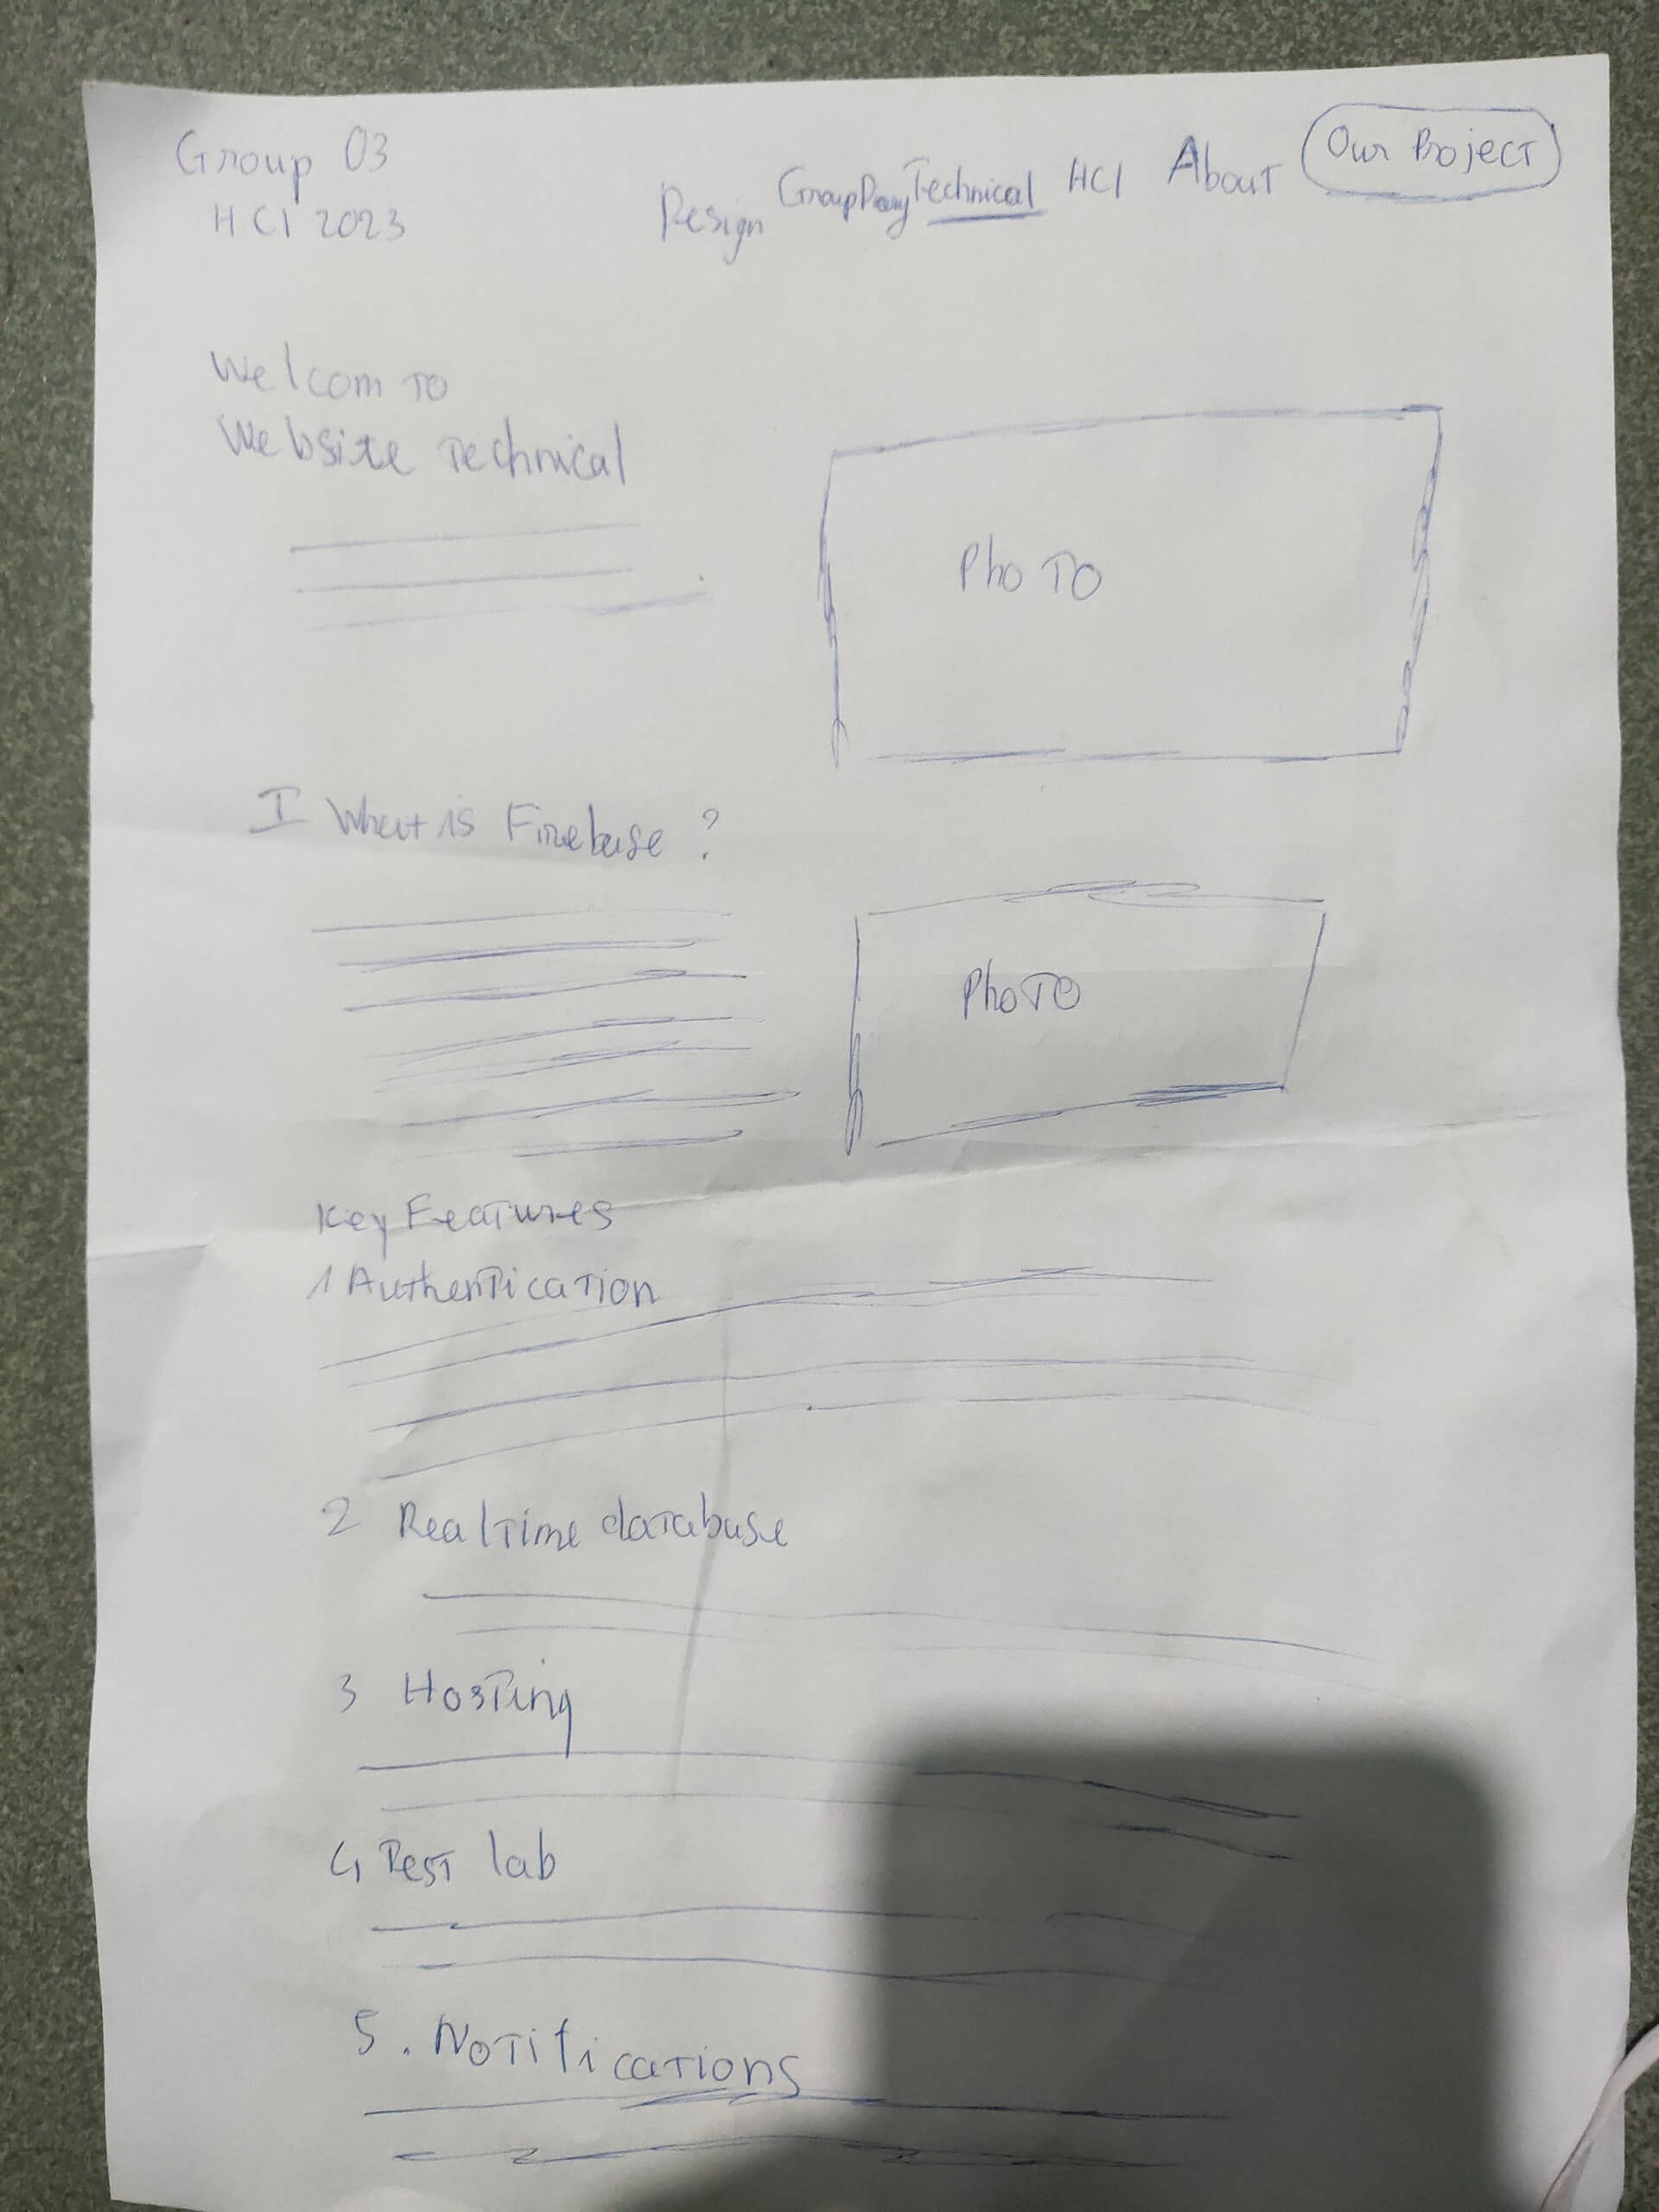 Group 03
HCI 2023
Design Group Technical HCI About Our Project
Welcom To
Website Technical
Photo
I What is Firebase ?
Photo
Key Features
1 Authentication
2 Realtime database
3 Hosting
4 Test lab
5. Notifications